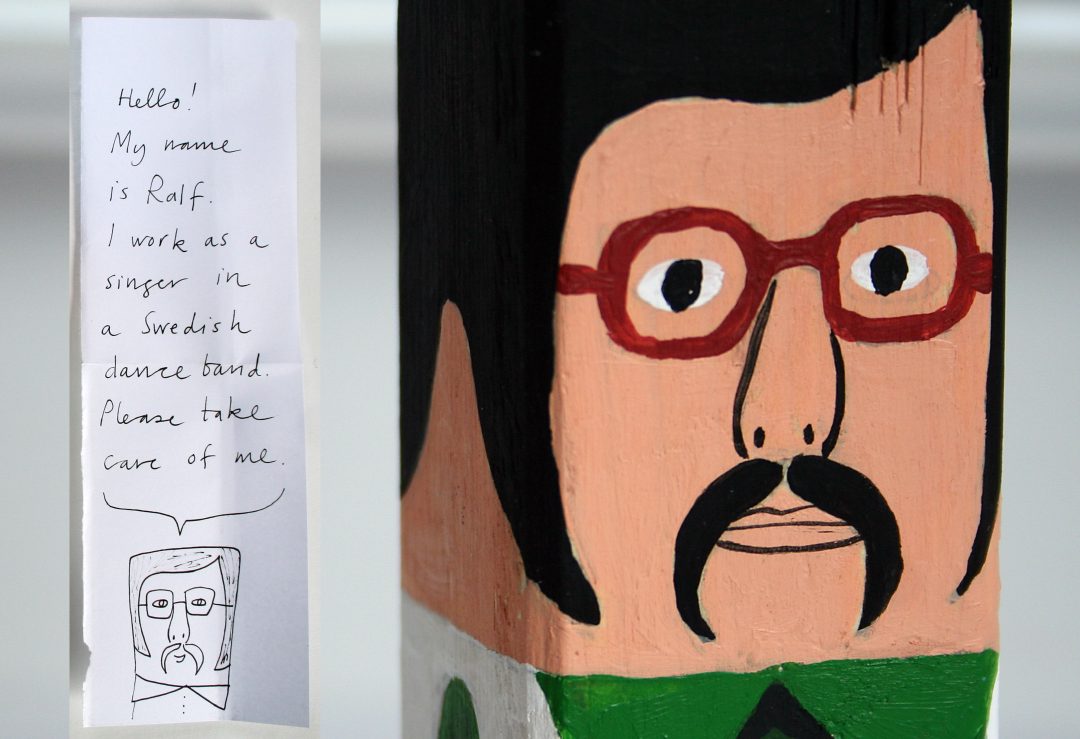 Hello!
My name
is Ralf.
I work as a
singer in
a Swedish
dance band.
Please take
care of me.